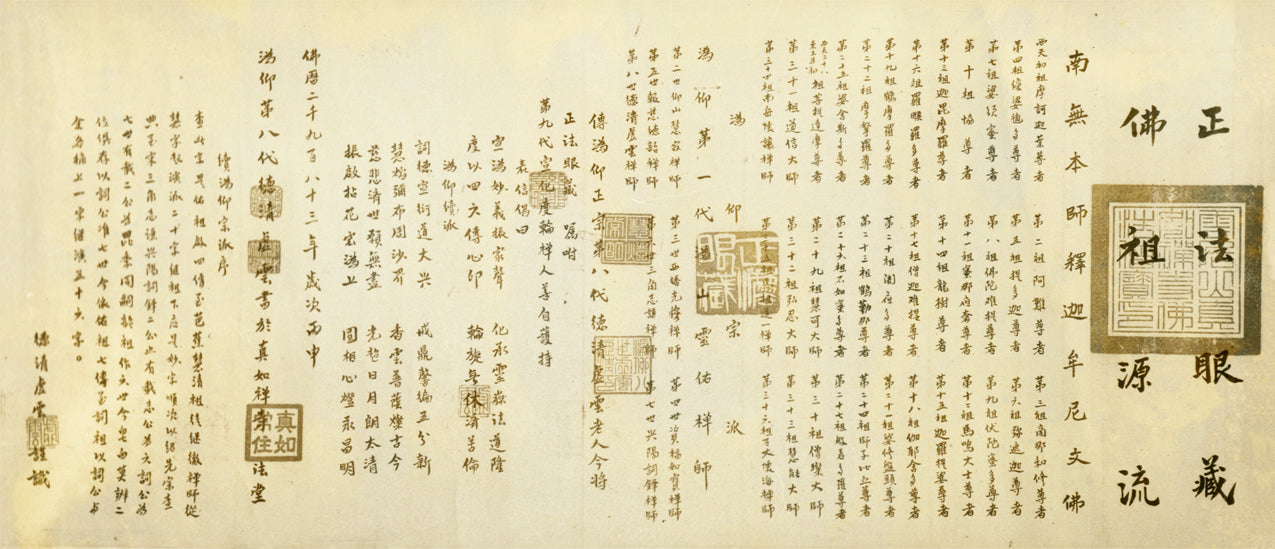 正法眼藏
佛祖源流
南無本師釋迦牟尼文佛
西天初祖摩訶迦葉尊者 第二祖阿難尊者 第三祖商那和修尊者
第四祖優婆毱多尊者 第五祖提多迦尊者 第六祖彌遮迦尊者
第七祖婆須蜜尊者 第八祖佛陀難提尊者 第九祖伏陀蜜多尊者
第十祖脇尊者 第十一祖富那夜奢尊者 第十二祖馬鳴大士尊者
第十三祖迦毘摩羅尊者 第十四祖龍樹尊者 第十五祖迦羅提婆尊者
第十六祖羅睺羅多尊者 第十七祖僧迦難提尊者 第十八祖伽耶舍多尊者
第十九祖鶴摩羅多尊者 第二十祖闍夜多尊者 第二十一祖婆修盤頭尊者
第二十二祖摩拏羅尊者 第二十三祖鶴勒那尊者 第二十四祖師子比丘尊者
第二十五祖婆舍斯多尊者 第二十六祖不如蜜多尊者 第二十七祖般若多羅尊者
西天二十八東土初祖菩提達摩尊者 第二十九祖慧可大師 第三十祖僧璨大師
第三十一祖道信大師 第三十二祖弘忍大師 第三十三祖慧能大師
第三十四祖南岳懷讓禪師 道一禪師 第三十六祖百丈懷海禪師
溈仰宗派
溈仰第一代溈山靈佑禪師
第二世仰山慧寂禪師 第三世西塔光穆禪師 第四世資福如寶禪師
第五世報慈德韶禪師 第六世三角志謙禪師 第七世興陽詞鐸禪師
第八世德清虛雲禪師
傳溈仰正宗第八代德清虛雲老人今將
正法眼藏 囑咐
第九代宣化度輪禪人善自護持
表信偈曰
宣溈妙義振家聲 化承靈嶽法道隆
度以四六傳心印 輪旋無休濟苦倫
溈仰續派
詞德宣衍道大興 戒鼎馨徧五分新
慧焰彌布周沙界 香雲普蔭燦古今
慈悲濟世願無盡 光昭日月朗太清
振啟拈花宏溈上 圓相心燈永昌明
佛曆二千九百八十三年歲次丙申
溈仰第八代德清虛雲書於真如禪寺法堂
真如常住
續溈仰宗派序
查此宗是佑祖啟四傳至芭蕉慧清祖後繼徹禪師從
慧字起演派二十字繼祖下應是妙字順次以紹先宗查
典至宗三角志謙興陽詞鐸二公止有載志公為六詞公為
七世
德清虛雲謹識